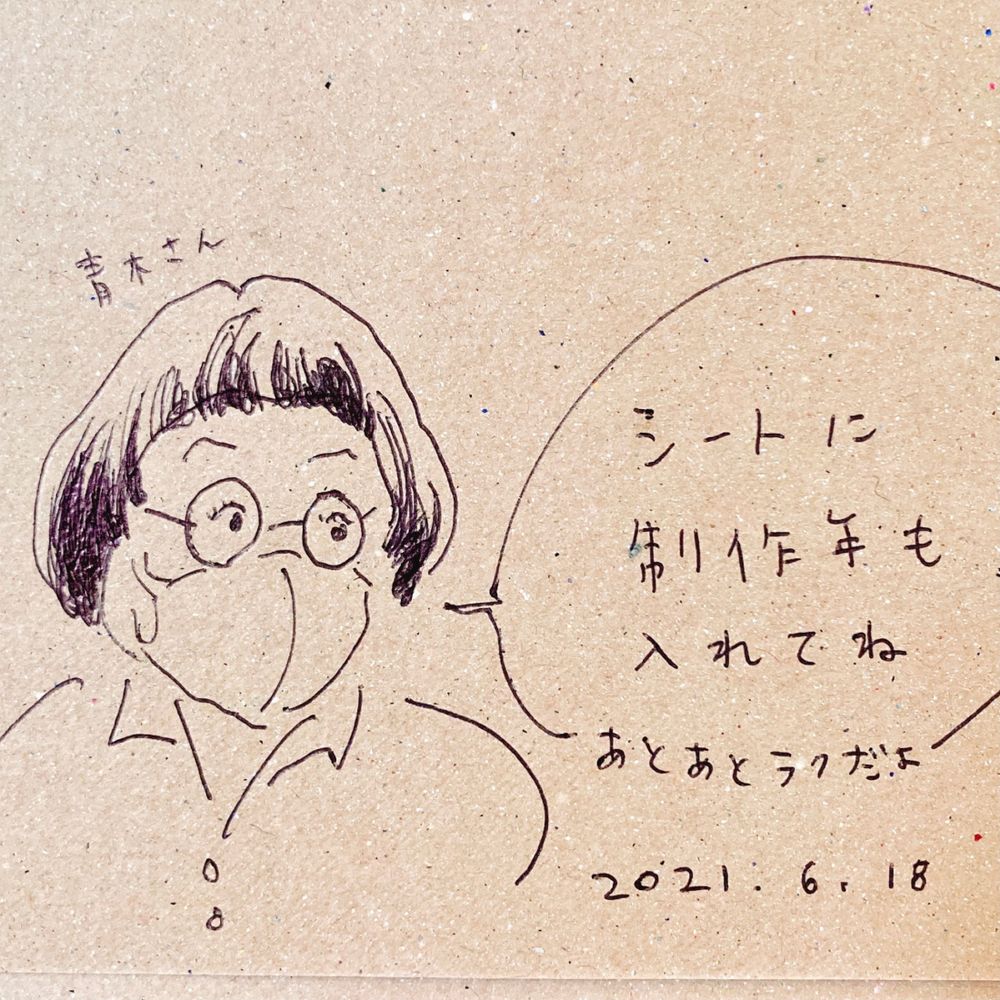 青木さん
シートに
制作年も
入れてね
あとあとラクだよ
2021. 6. 18